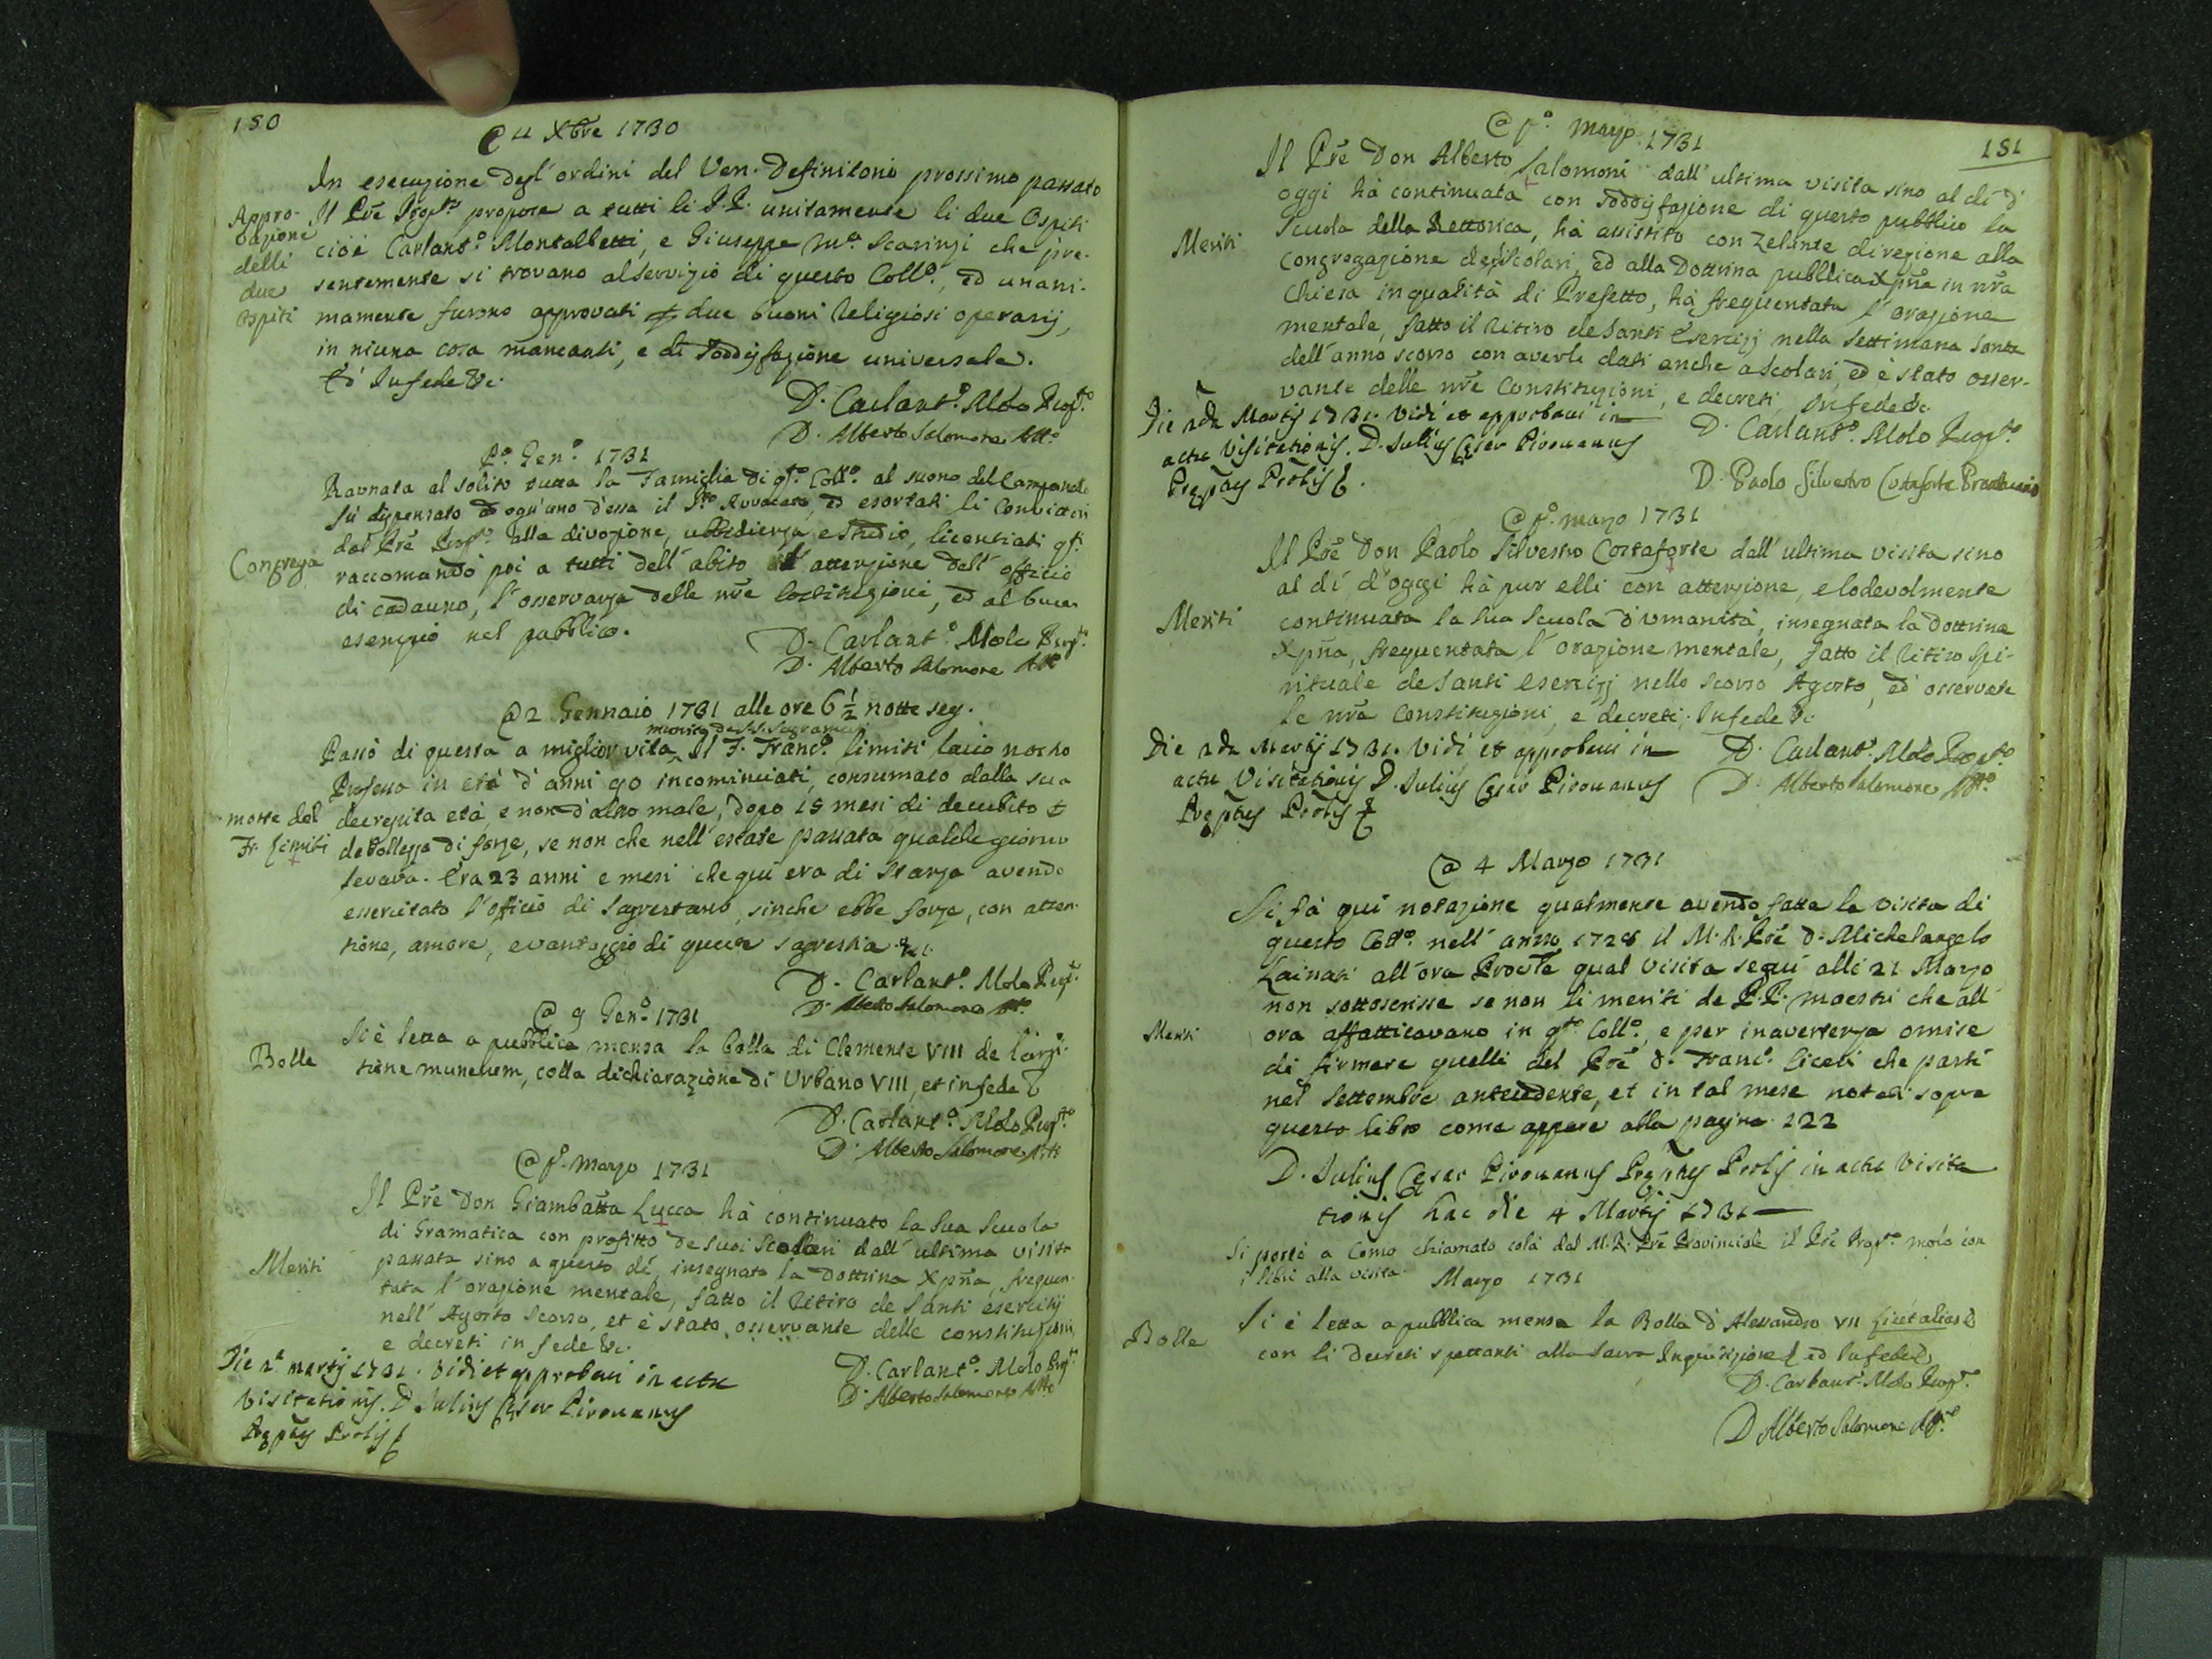 150
@ 11 Xbre 1730
In esecuzione degl'ordini del Ven. Definitorio prossimo passato
Appro-
bazione
delli
due
Ospiti
Il Pre Propto propose a tutti li P.P. unitamente li due Ospiti
cioè Carlanto. Montalbetti, e Giuseppe Ma. Scarinzi che pre-
sentemente si trovano al servizio di questo Collo, ed unani-
mamente furono approvati due buoni Religiosi operarij,
in niuna cosa mancanti, e di soddisfazione universale.
Ed in fede &c.
D. Carlanto. Molo Propto
D. Alberto Salomone Atto
Po. Geno. 1731
Congrega
Raunata al solito tutta la Famiglia di qto Collo al suono del Campanello
fù dispensato ad ogn'uno d'essa il Sto Avvocato, ed esortati li Convittori
dal Pre Propto alla divozione, ubbidienza, e studio, licentiati qti
raccomandò poi a tutti dell'abito l'attenzione dell'officio
di cadauno, l'osservanza delle nre Costituzioni, ed al buon
esempio nel pubblico.
D. Carlanto. Molo Propto
D. Alberto Salomone Atto
@ 2 Gennaio 1731 alle ore 6 1/2 notte seg.
munito de SS. Sagramenti
Passò di questa a miglior vita, Il F. Franco. Limiti laico nostro
Professo in età d'anni 90 incominciati, consumato dalla sua
morte del
Fr. Limiti
decrepita età e non d'altro male, dopo 15 mesi di decubito e
debollezza di forze, se non che nell'estate passata qualche giorno
levava. Era 23 anni e mesi che qui era di stanza avendo
essercitato l'officio di Sagrestano, sinche ebbe forze, con atten-
tione, amore, e vantaggio di questa sagrestia &c.
D. Carlanto. Molo Propto
D. Alberto Salomone Atto
@ 9 Geno. 1731
Bolle
Si è letta a pubblica mensa la bolla di Clemente VIII de largi-
tione munerum, colla dichiarazione di Urbano VIII, et in fede
D. Carlanto. Molo Propto
D. Alberto Salomone Atto
@ po. Marzo 1731
Meriti
Il Pre Don Giambatta Lucca hà continuato la sua scuola
di Gramatica con profitto de suoi Scolari dall'ultima visita
passata sino a questo dì, insegnato la Dottrina Xpna, frequen-
tata l'orazione mentale, fatto il Ritiro de Santi esercitij
nell'Agosto scorso, et è stato osservante delle constituzioni,
e decreti in fede &c.
D. Carlanto. Molo Propto
D. Alberto Salomone Atto
Die 2a martij 1731. Vidi et approbavi in actu
Visitationis. D. Julius Cesar Pirovanus
Preptus Prolis
151
@ po. Marzo 1731
Meriti
Il Pre Don Alberto Salomoni dall'ultima visita sino al dì d'
oggi hà continuata con soddisfazione di questo pubblico la
scuola della Rettorica, hà assistito con zelante direzione alla
Congregazione degl'Scolari, ed alla Dottrina pubblica Xpna in nra
Chiesa in qualità di Prefetto, hà frequentata l'orazione
mentale, fatto il Ritiro de Santi Esercizj nella Settimana Santa
dell'anno scorso con averli dati anche a Scolari, ed è stato osser-
vante delle nre Constituzioni, e decreti. In fede &c.
D. Carlanto. Molo Propto
D. Paolo Silvestro Costaforte Proattuario
Die 2da Martij 1731. Vidi et approbavi in
actu Visitationis. D. Julius Cesar Pirovanus
Prepptus Prolis.
@ po. marzo 1731
Meriti
Il Pre Don Paolo Silvestro Costaforte dall'ultima visita sino
al dì d'oggi hà pur elli con attenzione, e lodevolmente
continuata la sua scuola d'umanità, insegnata la Dottrina
Xpna, frequentata l'orazione mentale, fatto il Ritiro Spi-
rituale de Santi esercizj nello scorso Agosto, ed osservate
le nre Constituzioni, e decreti. In fede &c.
D. Carlanto. Molo Propto
D. Alberto Salomone Atto
Die 2da Martij 1731. Vidi et approbavi in
actu Visitationis D. Julius Cesar Pirovanus
Prepptus Prolis
@ 4 Marzo 1731
Meriti
Si fà qui notazione qualmente avendo fatta la visita di
questo Collo. nell'anno 1728 il M.R. Pre D. Michelangelo
Lainati all'ora Provle qual visita seguì alli 21 Marzo
non sottoscrisse se non li meriti de P.P. maestri che all'
ora affatticavano in qto Collo, e per inavertenza omise
di firmare quelli del Pre D. Franco. Liceti che partì
nel Settembre antecedente, et in tal mese notati sopra
questo libro come appare alla pagina 122
D. Julius Cesar Pirovanus Prepptus Prolis in actu Visita
tionis hac die 4 Martij 1731
Si portò a Como chiamato colà dal M.R. Pre Provinciale il Pre Propto molo con
i libri alla visita.
Marzo 1731
Bolle
Si è letta a pubblica mensa la Bolla d'Alessandro VII Licet alias
con li decreti spettanti alla Sacra Inquisizione, ed in fede
D. Carlanto. Molo Propto
D. Alberto Salomone Atto